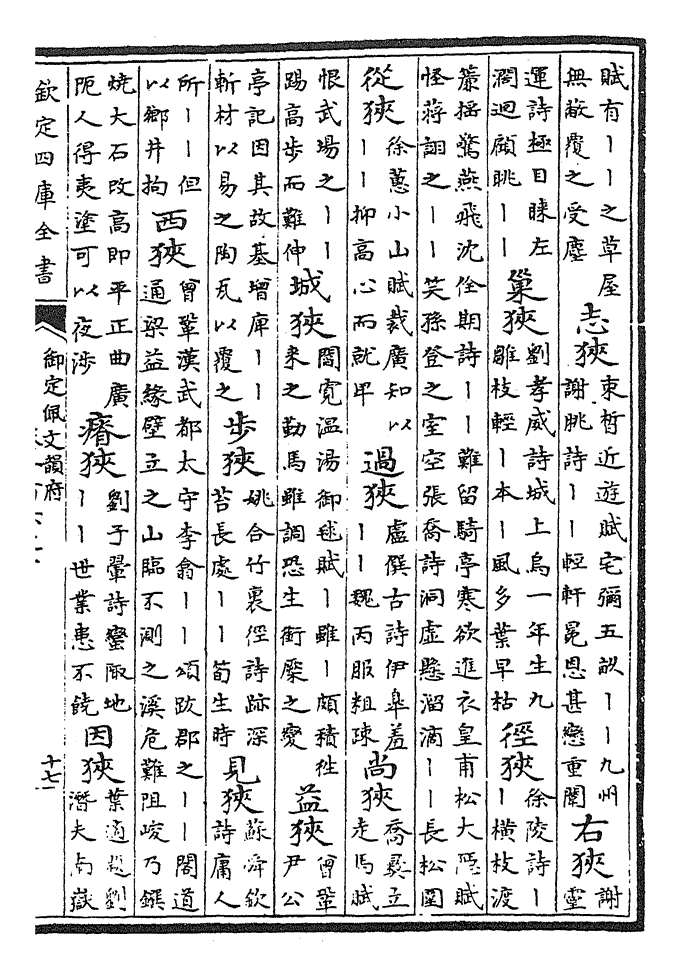 賦有丨丨之草屋
無蔽覆之受塵
志狹
束晳近遊賦宅彌五畝丨丨九州
謝朓詩丨丨輕軒晃恩甚戀重闈
右狹
謝
靈
運詩極目睞左
濶迴顧眺丨丨
巢狹
劉孝威詩城上烏一年生九
雛枝輕丨本丨風多葉早枯
徑狹
徐陵詩丨
丨橫枝渡
簾搖驚燕飛沈佺期詩丨丨難留騎亭寒欲進衣皇甫松大隱賦
怪蔣詡之丨丨笑孫登之室空張喬詩洞虛懸溜滴丨丨長松圍
從狹
徐蕙小山賦裁廣知以
丨丨抑高心而就卑
過狹
盧僎古詩伊臯羞
丨丨魏丙服粗疎
尚狹
喬彝立
走馬賦
恨武場之丨丨
踢高步而難伸
城狹
閻寬溫湯御毬賦丨雖丨頗積往
來之勤馬雖調恐生銜橜之變
益狹
曾鞏
尹公
亭記因其故基增庳丨丨
斬材以易之陶瓦以覆之
步狹
姚合竹裏徑詩跡深
苔長處丨丨筍生時
見狹
蘇舜欽
詩庸人
所丨丨但
以鄉井拘
西狹
曾鞏漢武都太守李翕丨丨頌跋郡之丨丨閣道
通梁益緣壁立之山臨不測之溪危難阻峻乃鐫
燒大石改高即平正曲廣
阨人得夷塗可以夜涉
瘠狹
劉子翬詩蠻陬地
丨丨世業患不饒
因狹
葉適題劉
潛夫南嶽
欽定四庫全書
御定佩文韻府
十七